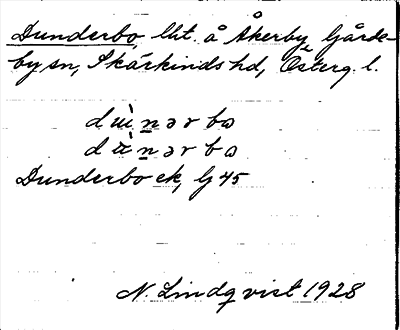 Dunderbo, lht. å Åkerby, Gårde-
by sn, Skärkinds hd, Österg. l.
Dunderbo ek, Gj 45
N. Lindqvist 1928